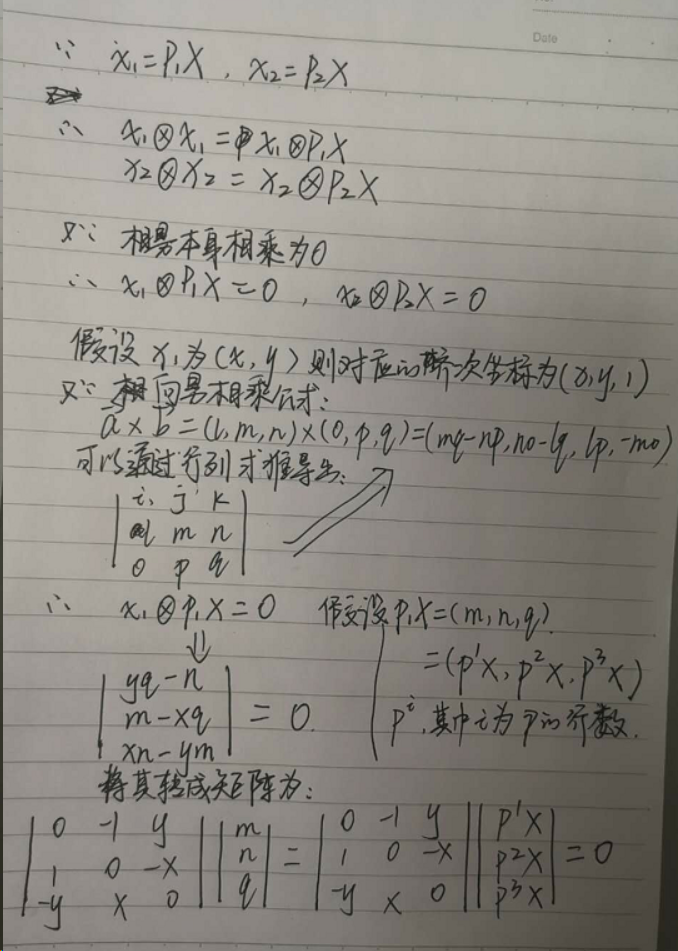 Date
∵ x₁=P₁X , x₂=P₂X
∴ x₁⊗x₁=x₁⊗P₁X
x₂⊗x₂=x₂⊗P₂X
又∵ 相男本身相乘为0
∴ x₁⊗P₁X=0 , x₂⊗P₂X=0
假设 x₁为(x,y)则对应的齐次坐标为(x,y,1)
又∵ 向男相乘公式:
a×b=(l,m,n)×(o,p,q)=(mq-np,no-lq,lp,-mo)
可以通过行列式推导出:
| i, j k |
| l m n |
| o p q |
∴ x₁⊗P₁X=0 假设P₁X=(m,n,q)
⇓ =(p¹X,p²X,p³X)
| yq-n |
| m-xq | =0. pⁱ,其中i为P的行数.
| xn-ym |
将其转成矩阵为:
| 0 -1 y | | m | = | 0 -1 y | | p¹X |
| 1 0 -x | | n | | 1 0 -x | | p²X | =0
| -y x 0 | | q | | -y x 0 | | p³X |